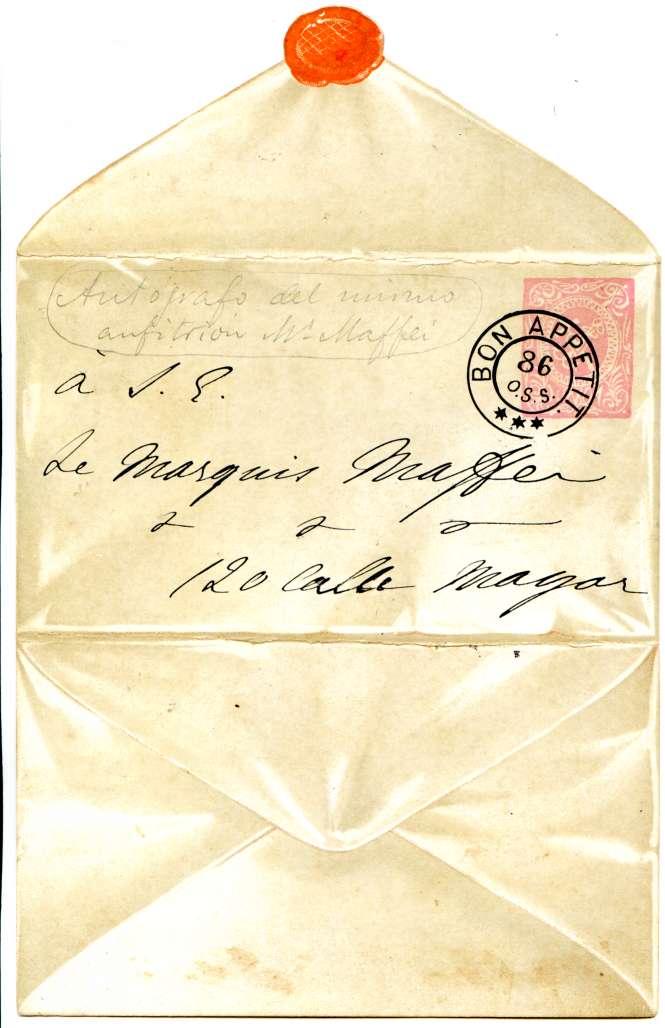 Autógrafo del mismo
anfitrión Mr. Maffei
BON APPETIT.
86
O.S.S.
à S. E.
Le Marquis Maffei
120 Calle Mayor